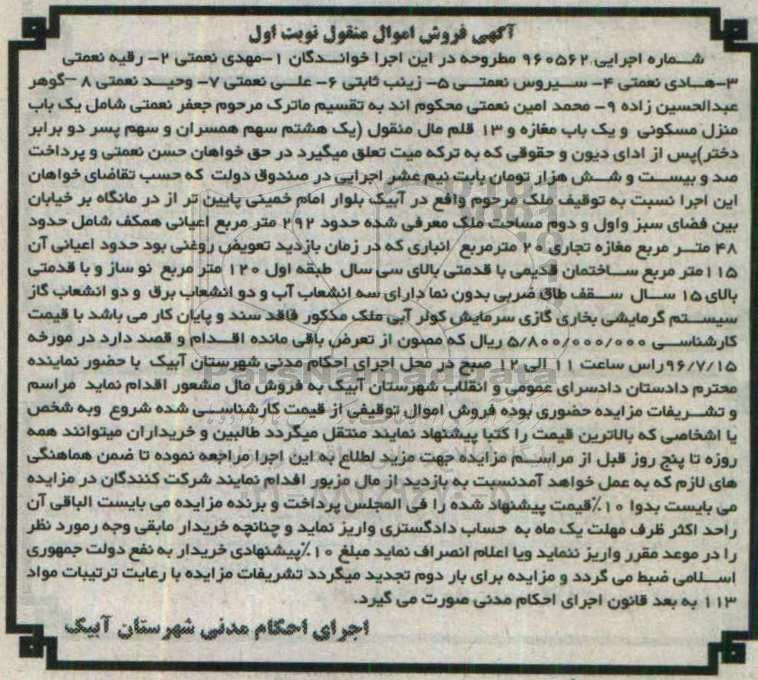 آگهی فروش اموال منقول نوبت اول
شماره اجرایی ۹۶۰۵۶۲ مطروحه در این اجرا خواندگان ۱-مهدی نعمتی ۲- رقیه نعمتی
۳-هادی نعمتی ۴- سیروس نعمتی ۵- زینب ثابتی ۶- علی نعمتی ۷- وحید نعمتی ۸-گوهر
عبدالحسین زاده ۹- محمد امین نعمتی محکوم اند به تقسیم ماترک مرحوم جعفر نعمتی شامل یک باب
منزل مسکونی و یک باب مغازه و ۱۳ قلم مال منقول (یک هشتم سهم همسران و سهم پسر دو برابر
دختر)پس از ادای دیون و حقوقی که به ترکه میت تعلق میگیرد در حق خواهان حسن نعمتی و پرداخت
صد و بیست و شش هزار تومان بابت نیم عشر اجرایی در صندوق دولت که حسب تقاضای خواهان
این اجرا نسبت به توقیف ملک مرحوم واقع در آبیک بلوار امام خمینی پایین تر از در مانگاه بر خیابان
بین فضای سبز واول و دوم مساحت ملک معرفی شده حدود ۲۹۲ متر مربع اعیانی همکف شامل حدود
۴۸ متر مربع مغازه تجاری ۲۰ مترمربع انباری که در زمان بازدید تعویض روغنی بود حدود اعیانی آن
۱۱۵متر مربع ساختمان قدیمی با قدمتی بالای سی سال طبقه اول ۱۲۰ متر مربع نو ساز و با قدمتی
بالای ۱۵ سال سقف طاق ضربی بدون نما دارای سه انشعاب آب و دو انشعاب برق و دو انشعاب گاز
سیستم گرمایشی بخاری گازی سرمایش کولر آبی ملک مذکور فاقد سند و پایان کار می باشد با قیمت
کارشناسی ۵/۸۰۰/۰۰۰/۰۰۰ ریال که مصون از تعرض باقی مانده اقدام و قصد دارد در مورخه
۹۶/۷/۱۵راس ساعت ۱۱ الی ۱۲ صبح در محل اجرای احکام مدنی شهرستان آبیک با حضور نماینده
محترم دادستان دادسرای عمومی و انقلاب شهرستان آبیک به فروش مال مشعور اقدام نماید مراسم
و تشریفات مزایده حضوری بوده فروش اموال توقیفی از قیمت کارشناسی شده شروع وبه شخص
یا اشخاصی که بالاترین قیمت را کتبا پیشنهاد نمایند منتقل میگردد طالبین و خریداران میتوانند همه
روزه تا پنج روز قبل از مراسم مزایده جهت مزید لطلاع به این اجرا مراجعه نموده تا ضمن هماهنگی
های لازم که به عمل خواهد آمدنسبت به بازدید از مال مزبور اقدام نمایند شرکت کنندگان در مزایده
می بایست بدوا ۱۰٪قیمت پیشنهاد شده را فی المجلس پرداخت و برنده مزایده می بایست الباقی آن
راحد اکثر ظرف مهلت یک ماه به حساب دادگستری واریز نماید و چنانچه خریدار مابقی وجه رمورد نظر
را در موعد مقرر واریز ننماید ویا اعلام انصراف نماید مبلغ ۱۰٪پیشنهادی خریدار به نفع دولت جمهوری
اسلامی ضبط می گردد و مزایده برای بار دوم تجدید میگردد تشریفات مزایده با رعایت ترتیبات مواد
۱۱۳ به بعد قانون اجرای احکام مدنی صورت می گیرد.
اجرای احکام مدنی شهرستان آبیک